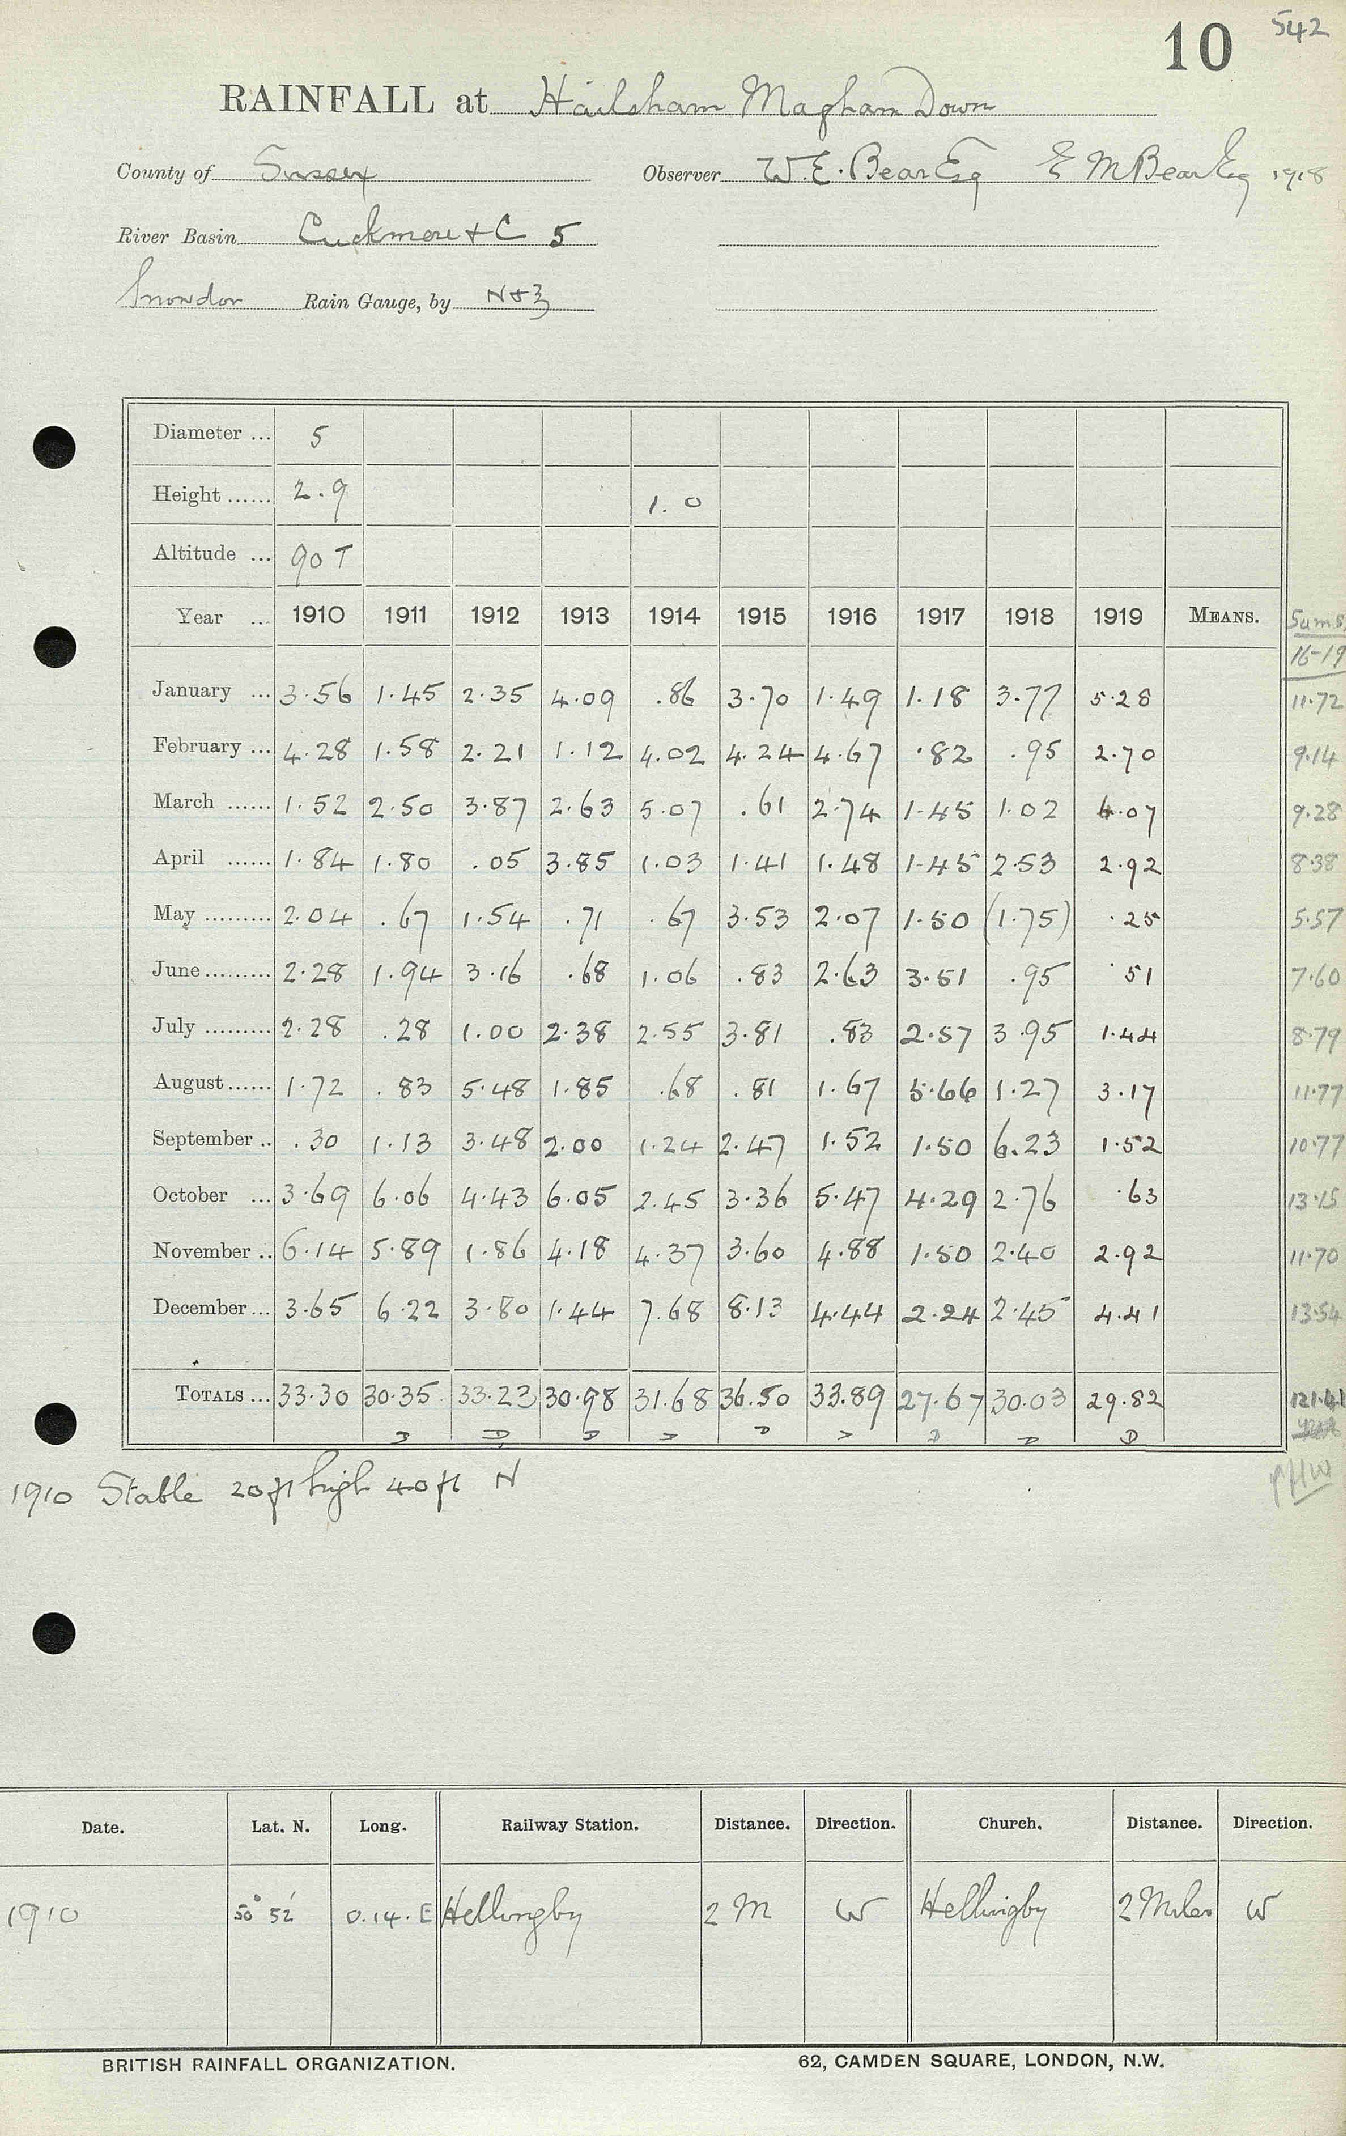 10 542
RAINFALL at Hailsham Magham Down
County of Sussex Observer W.E. Bear Esq E M Bear Esq 1918
River Basin Cuckmere + C 5
Snowdon Rain Gauge, by N & Z
Diameter ... 5
Height ...... 2.9 1.0
Altitude ... 90 T
Year ... 1910 1911 1912 1913 1914 1915 1916 1917 1918 1919 MEANS. Sums
16-19
January ... 3.56 1.45 2.35 4.09 .86 3.70 1.49 1.18 3.77 5.28 11.72
February ... 4.28 1.58 2.21 1.12 4.02 4.24 4.67 .82 .95 2.70 9.14
March ...... 1.52 2.50 3.87 2.63 5.07 .61 2.74 1.45 1.02 4.07 9.28
April ...... 1.84 1.80 .05 3.85 1.03 1.41 1.48 1.45 2.53 2.92 8.38
May ......... 2.04 .67 1.54 .71 .67 3.53 2.07 1.50 (1.75) .25 5.57
June ......... 2.28 1.94 3.16 .68 1.06 .83 2.63 3.51 .95 .51 7.60
July ......... 2.28 .28 1.00 2.38 2.55 3.81 .83 2.57 3.95 1.44 8.79
August ...... 1.72 .83 5.48 1.85 .68 .81 1.67 5.66 1.27 3.17 11.77
September .. .30 1.13 3.48 2.00 1.24 2.47 1.52 1.50 6.23 1.52 10.77
October ... 3.69 6.06 4.43 6.05 2.45 3.36 5.47 4.29 2.76 .63 13.15
November .. 6.14 5.89 1.86 4.18 4.37 3.60 4.88 1.50 2.40 2.92 11.70
December ... 3.65 6.22 3.80 1.44 7.68 8.13 4.44 2.24 2.45 4.41 13.54
TOTALS ... 33.30 30.35 33.23 30.98 31.68 36.50 33.89 27.67 30.03 29.82 121.41
D D D D D D D D D
1910 Stable 20 ft high 40 ft N
Date. Lat. N. Long. Railway Station. Distance. Direction. Church. Distance. Direction.
1910 50° 52' 0.14.E Hellingby 2 M W Hellingby 2 Miles W
BRITISH RAINFALL ORGANIZATION. 62, CAMDEN SQUARE, LONDON, N.W.